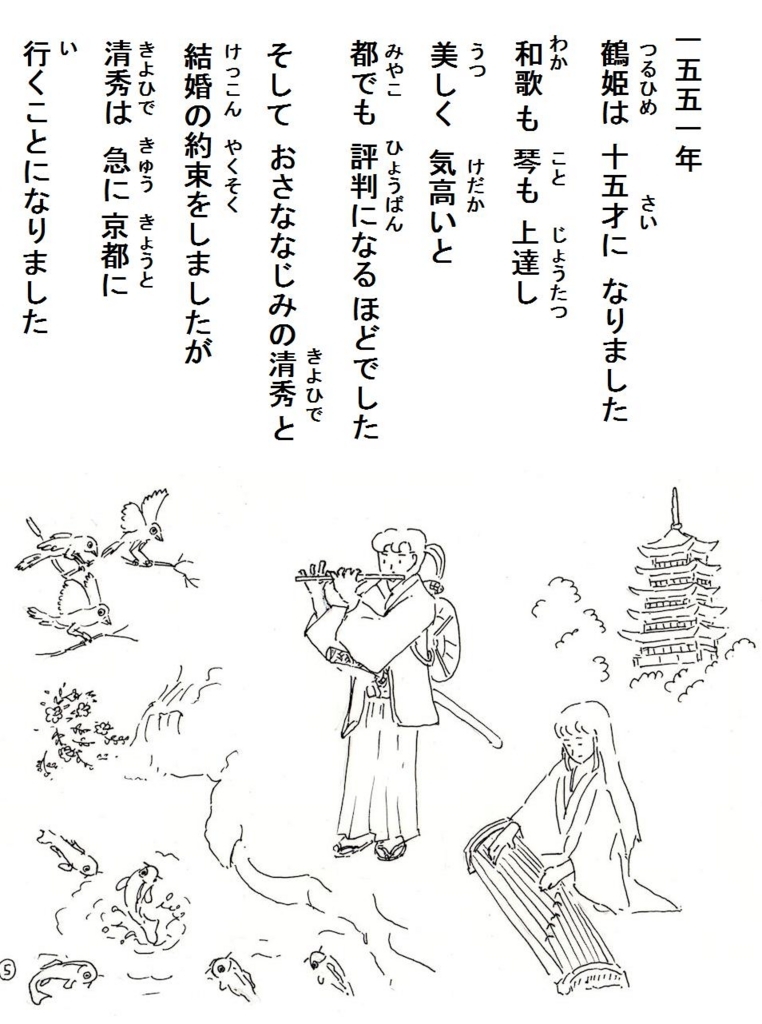 一五五一年
鶴姫は 十五才に なりました
つるひめ さい
和歌も 琴も 上達し
わか こと じょうたつ
美しく 気高いと
うつ けだか
都でも 評判になる ほどでした
みやこ ひょうばん
そして おさななじみの清秀と
きよひで
結婚の約束をしましたが
けっこん やくそく
清秀は 急に 京都に
きよひで きゅう きょうと
行くことになりました
い
5